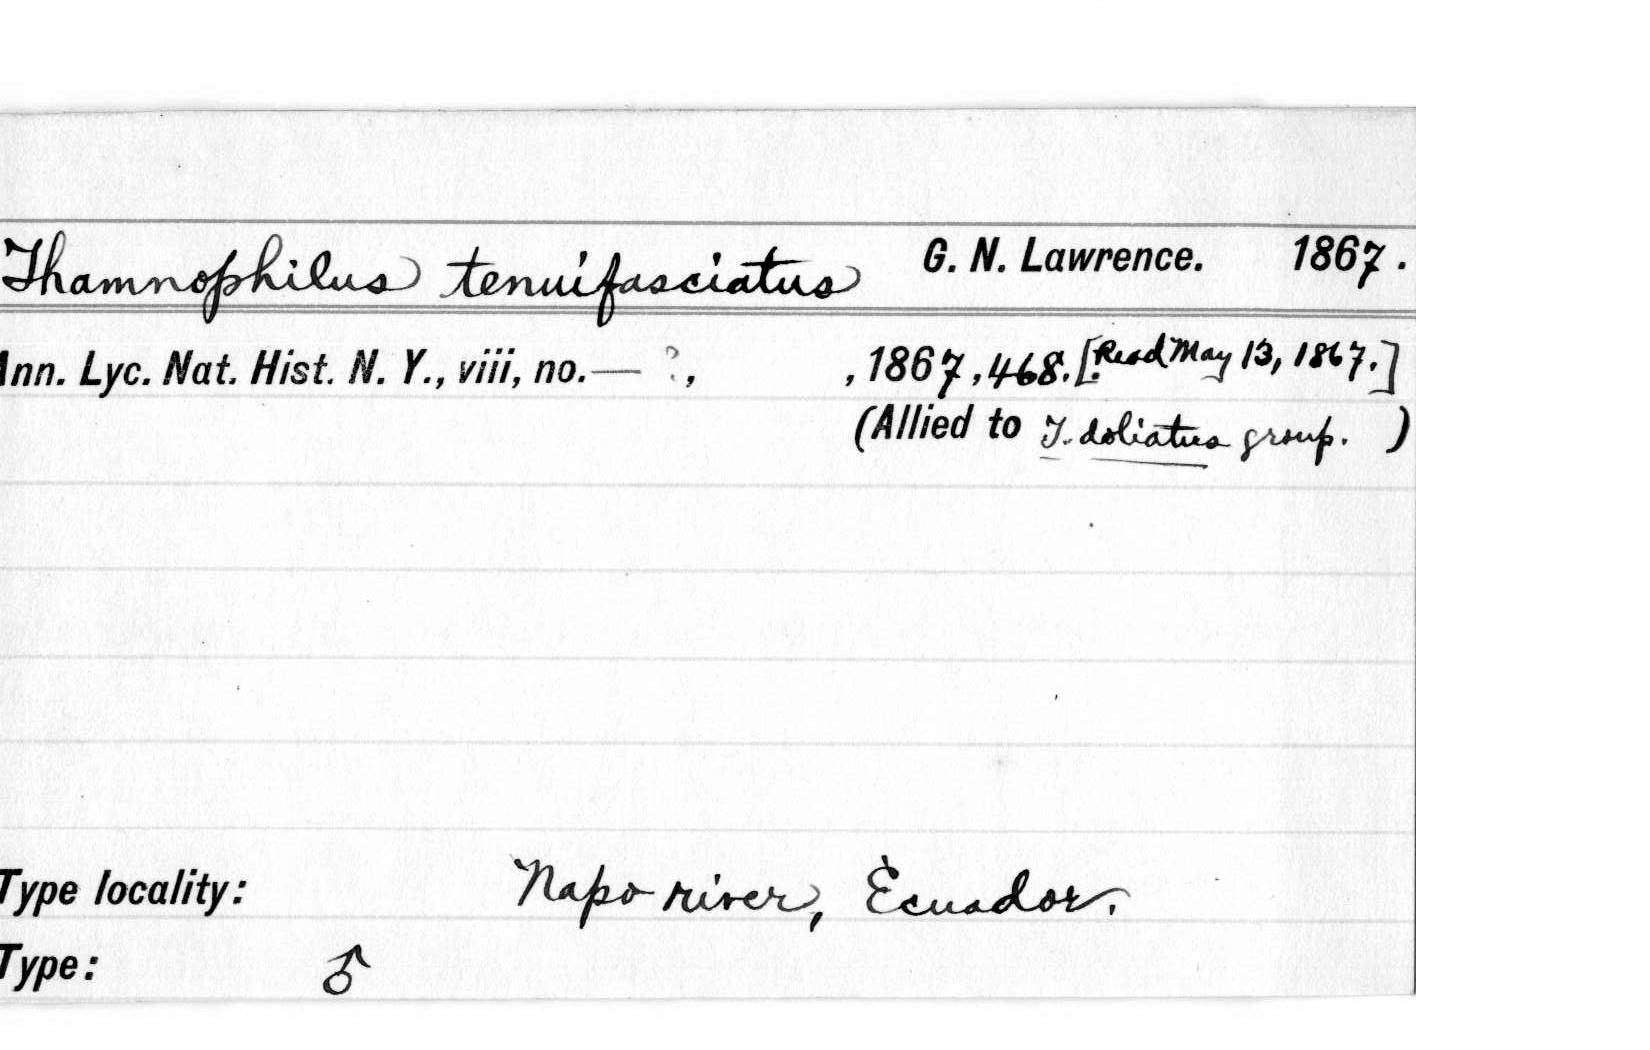 Thamnophilus tenuifasciatus G. N. Lawrence. 1867.
Ann. Lyc. Nat. Hist. N. Y., viii, no.— ?, , 1867, 468. [Read May 13, 1867.]
(Allied to T. doliatus group. )
Type locality: Napo river, Ecuador.
Type: ♂